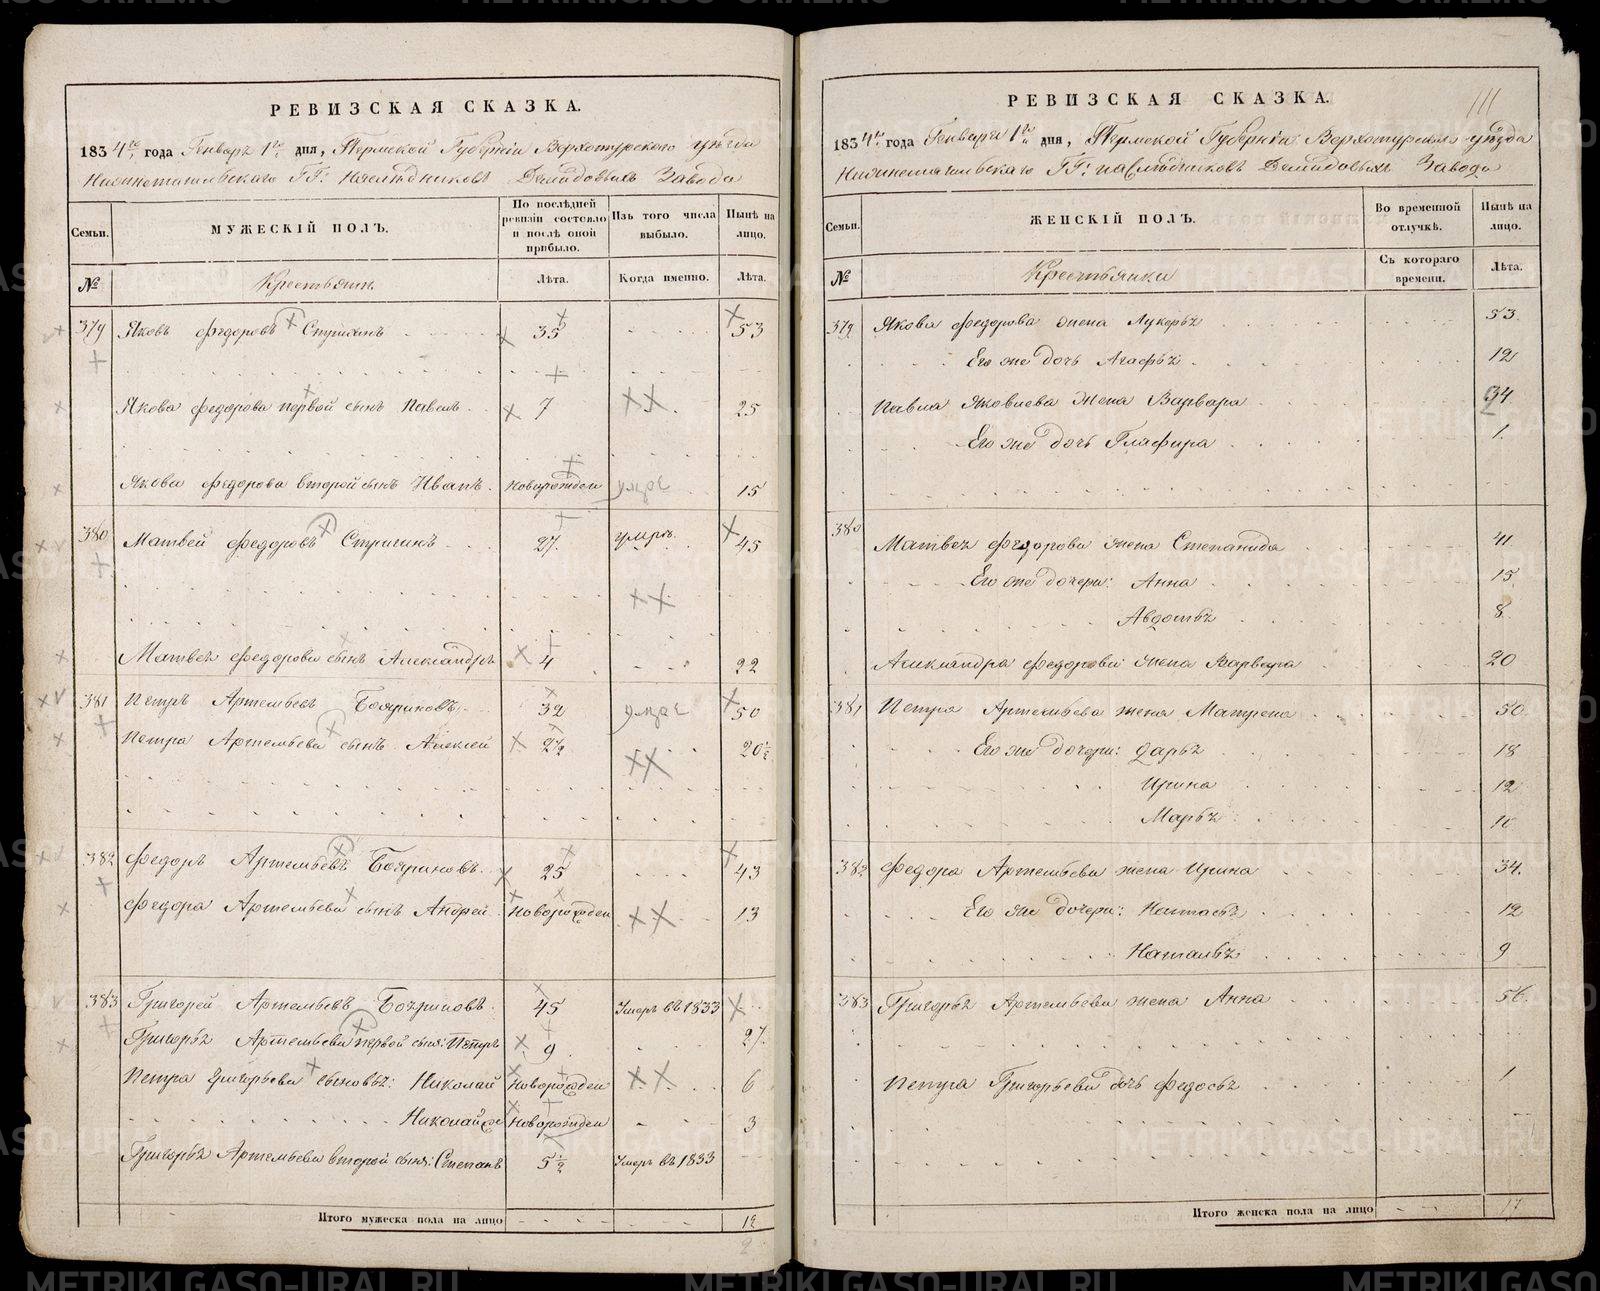 РЕВИЗСКАЯ СКАЗКА.
1834го года Генваря 1го дня, Пермской Губерніи Верхотурского уезда
Нижнетагильскаго ГГ: Наследниковъ Демидовыхъ Завода
Семьи.
МУЖЕСКІЙ ПОЛЪ.
По послѣдней ревизіи состояло и послѣ оной прибыло.
Изъ того числа выбыло.
Нынѣ на лицо.
№
Крестьяне
Лѣта.
Когда именно.
Лѣта.
379 Яковъ Федоровъ Стригинъ 35 53
Якова Федорова первой сынъ Павелъ 7 25
Якова Федорова второй сынъ Иванъ новорожден умре 15
380 Матвей Федоровъ Стригинъ 27 умре 45
Матвея Федорова сынъ Александръ 4 22
381 Петръ Артемьевъ Бояриновъ 32 умре 50
Петра Артемьева сынъ Алексей 2½ 20½
382 Федоръ Артемьевъ Бояриновъ 25 43
Федора Артемьева сынъ Андрей новорожден 13
383 Григорей Артемьевъ Бояриновъ 45 Умеръ въ 1833
Григорья Артемьева первой сынъ: Петръ 9 27
Петра Григорьева сыновья: Николай новорожден 6
Николай же новорожден 3
Григорья Артемьева второй сынъ: Степанъ 5½ Умеръ въ 1833
Итого мужеска пола на лицо 12
111
РЕВИЗСКАЯ СКАЗКА.
1834го года Генваря 1го дня, Пермской Губерніи Верхотурскаго уезда
Нижнетагильскаго ГГ: наследниковъ Демидовыхъ Завода
Семьи.
ЖЕНСКІЙ ПОЛЪ.
Во временной отлучкѣ.
Нынѣ на лицо.
№
Крестьянки
Съ котораго времени.
Лѣта.
379 Якова Федорова жена Лукерья 53
Его же дочь Агафья 12
Павла Яковлева жена Варвара 24
Его же дочь Глафира 1
380 Матвея Федорова жена Степанида 41
Его же дочери: Анна 15
Авдотья 8
Александра Федорова жена Варвара 20
381 Петра Артемьева жена Матрена 50
Его же дочери: Дарья 18
Ирина 12
Марья 10
382 Федора Артемьева жена Ирина 34
Его же дочери: Настасья 12
Наталья 9
383 Григорья Артемьева жена Анна 56
Петра Григорьева дочь Федосья 1
Итого женска пола на лицо 17
METRIKI.GASO-URAL.RU